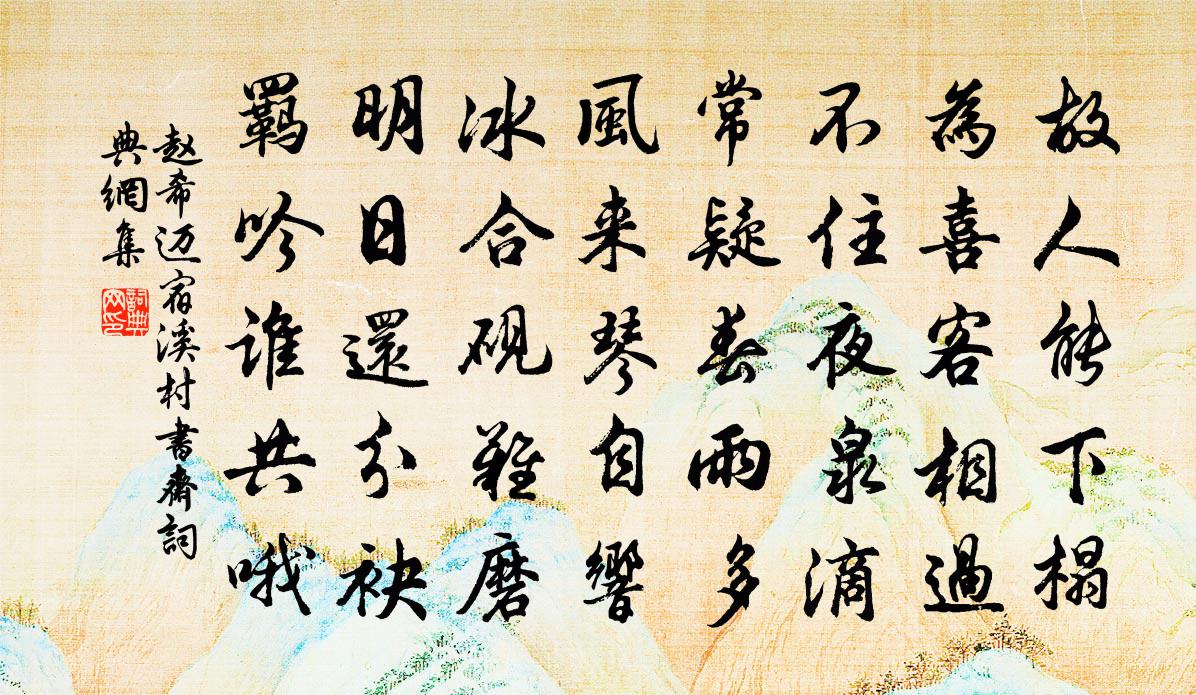 故人能下榻
為喜客相過
不住夜泉滴
常疑春雨多
風来琴自響
冰合硯難磨
明日還分袂
羈吟谁共哦
赵希迈宿溪村書齋詞
典網集
詞典
网印